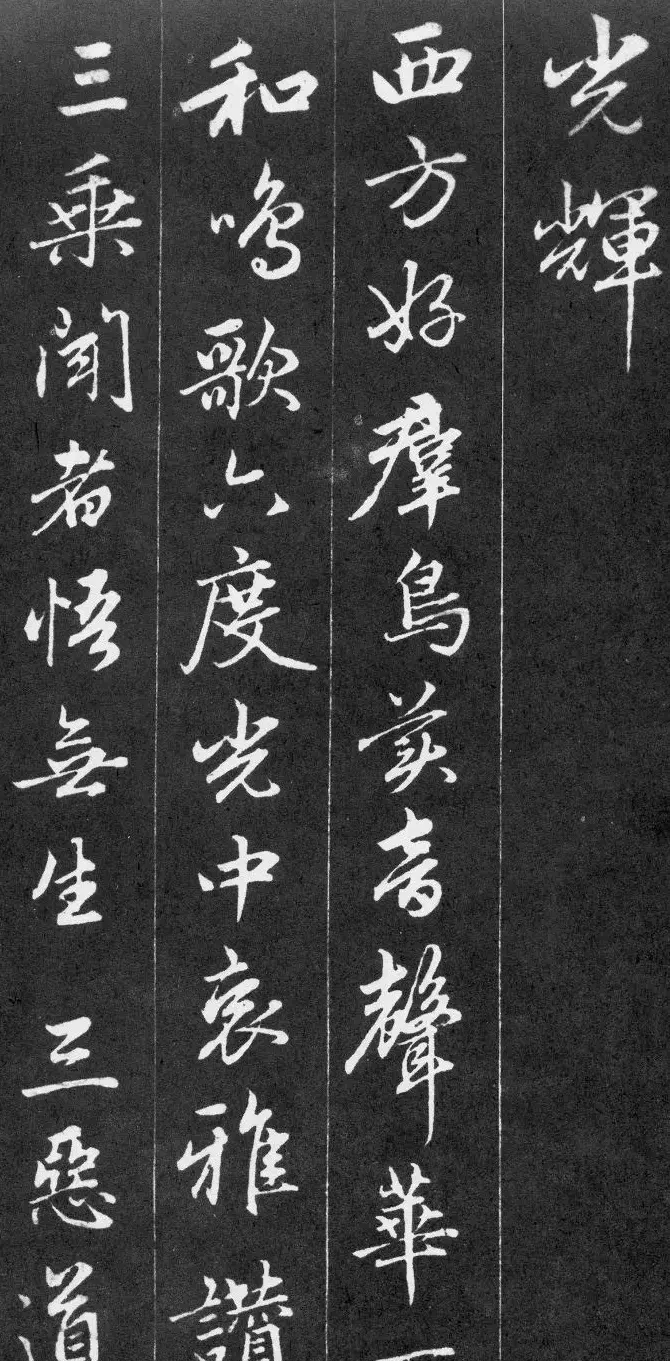 光輝
西方好群鳥美音聲華
和鳴歌六度光中哀雅讚
三乗聞者悟無生三惡道